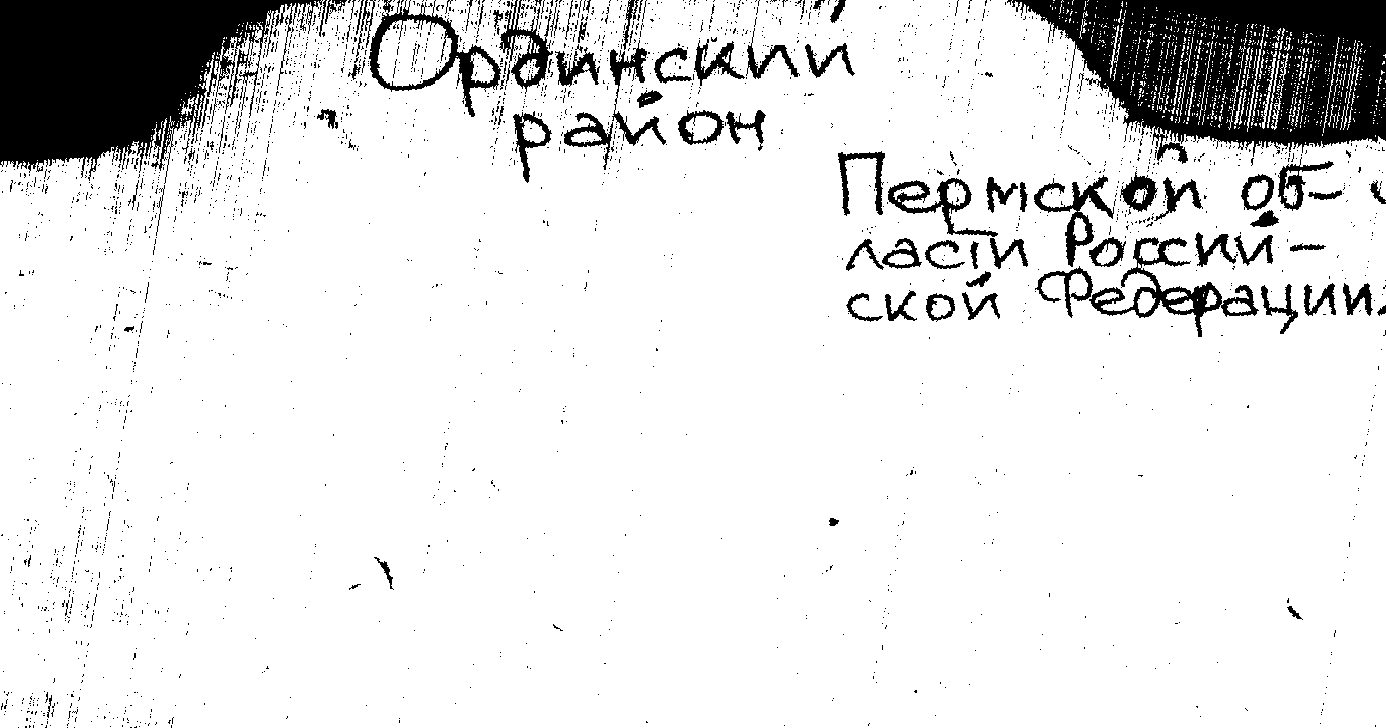 Ординский
район
Пермской об-
ласти Россий-
ской Федерации.